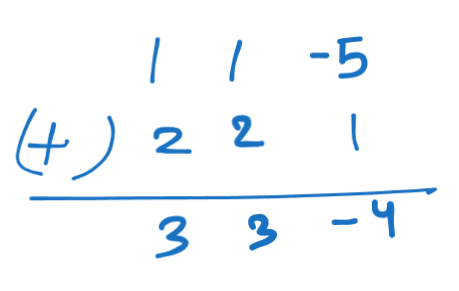 1 1 -5
(+) 2 2 1
3 3 -4